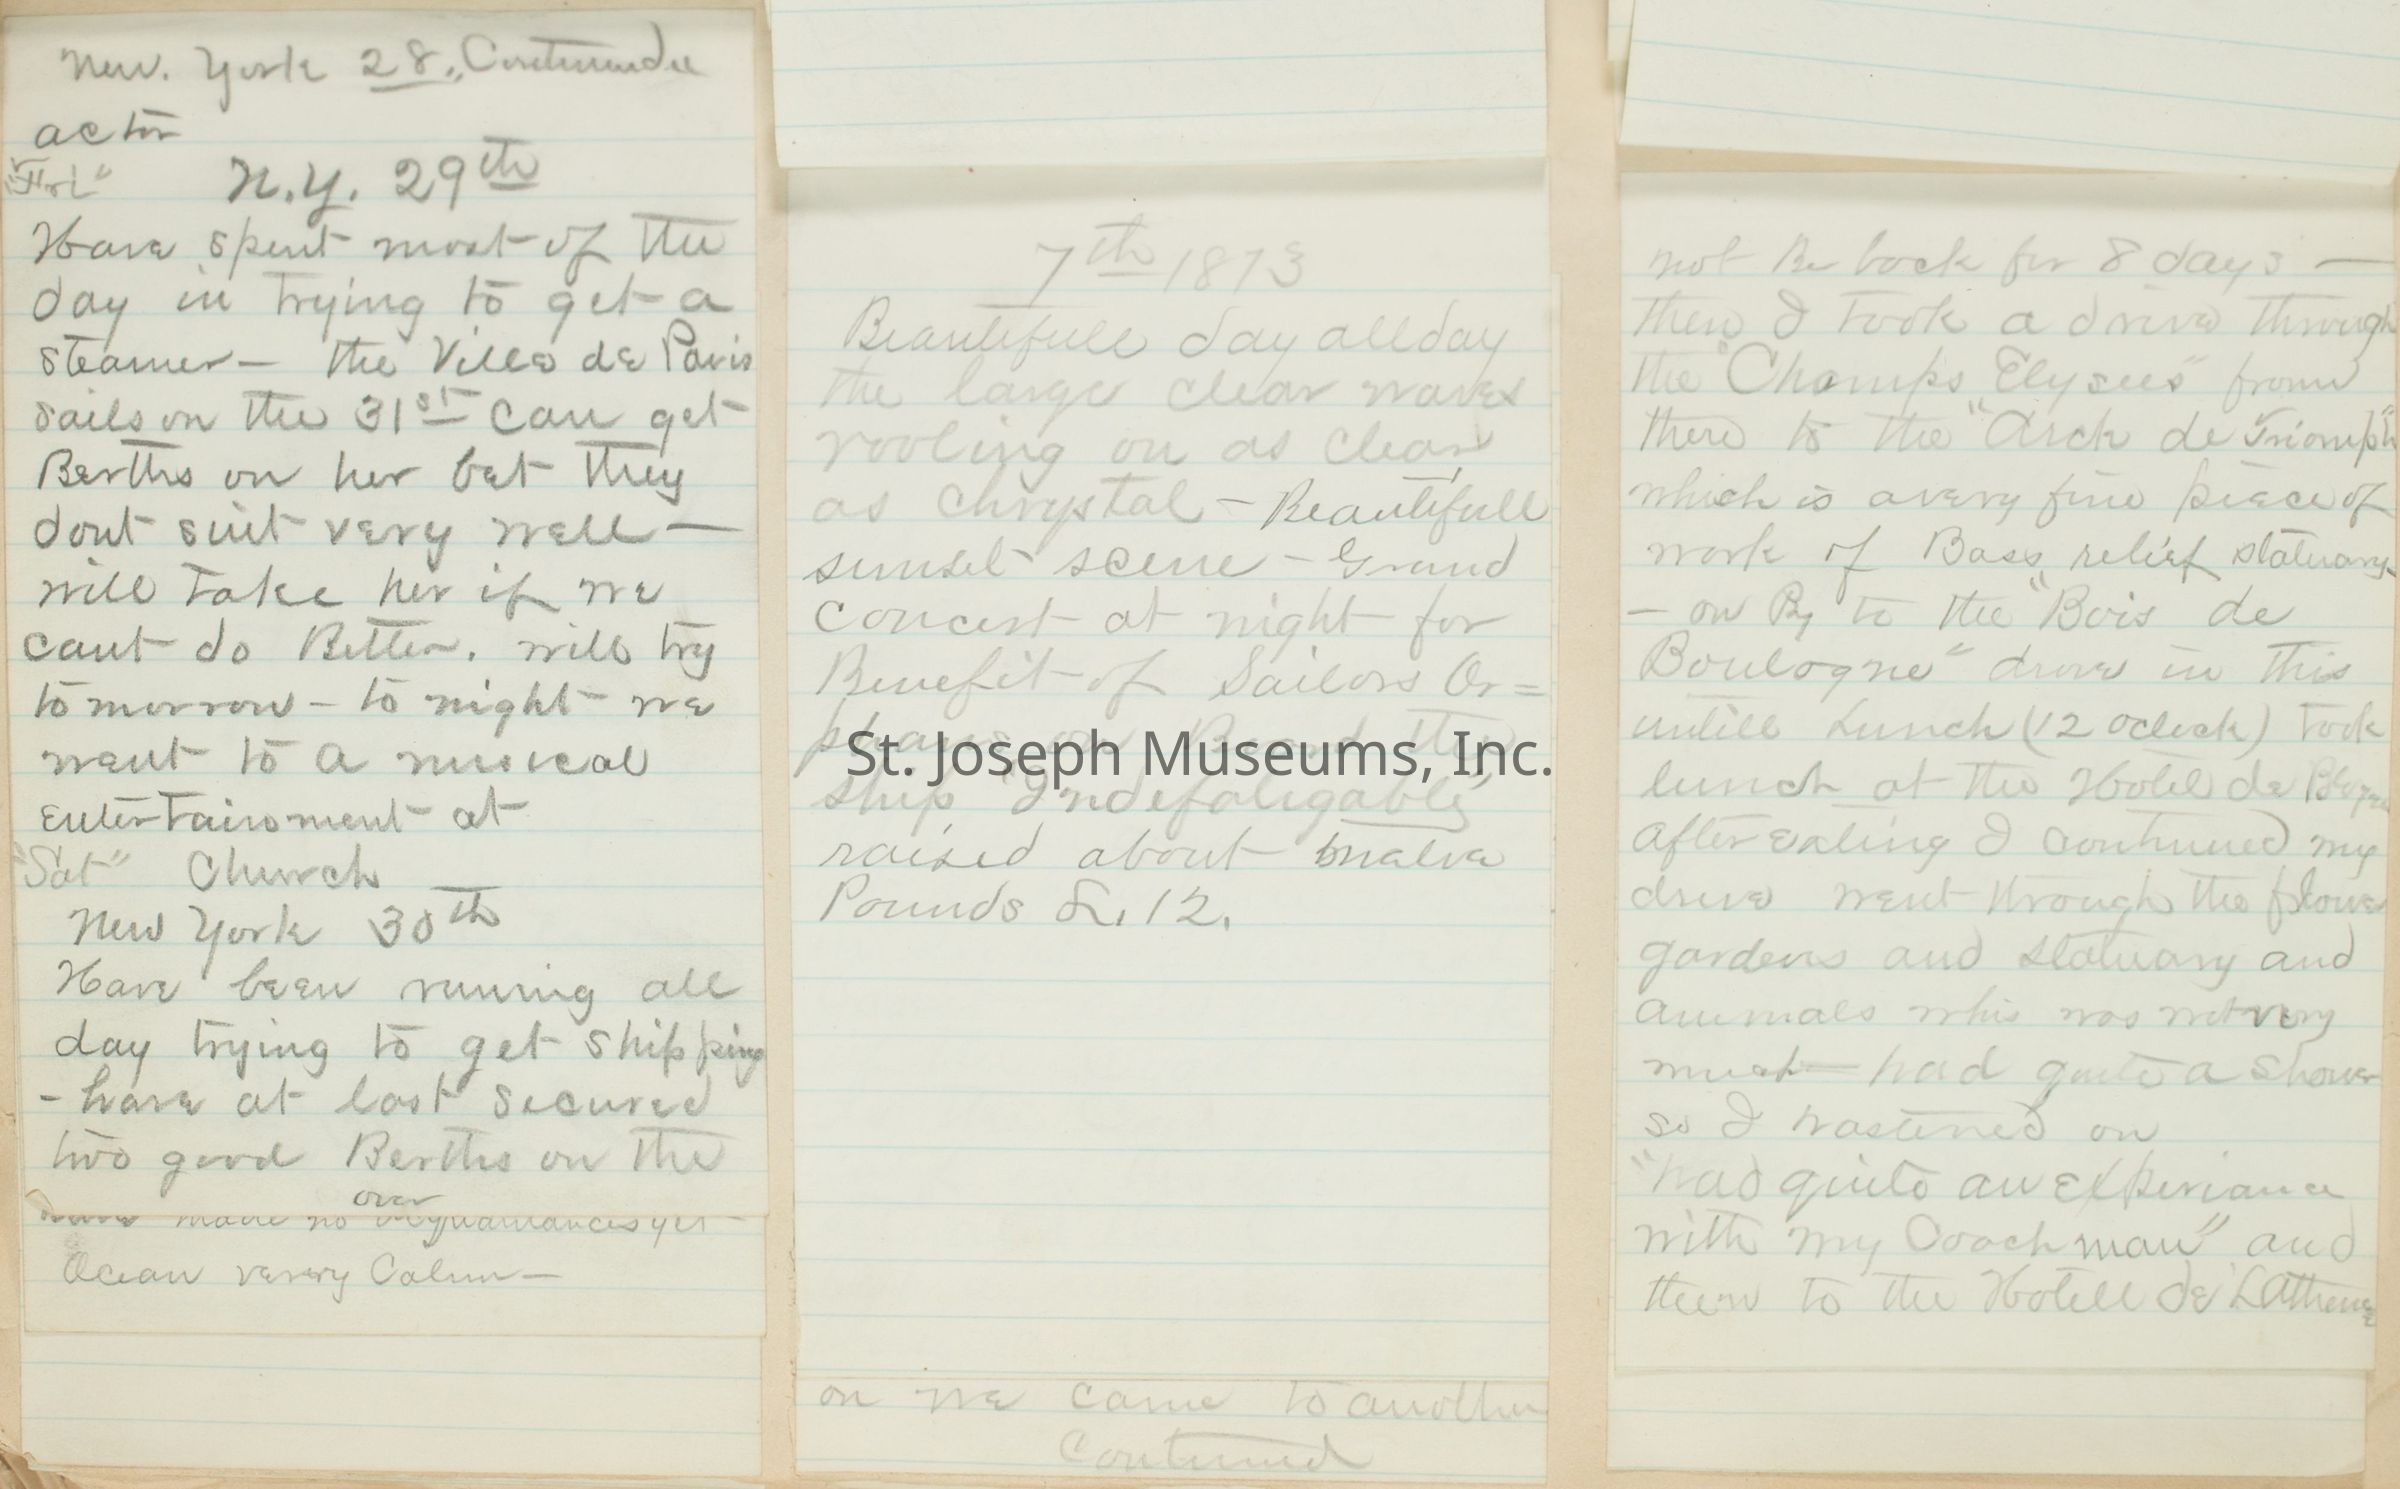 New. York 28,, Continuede
actor
"Fri" N.Y. 29th
Have spent most of the
day in trying to get a
steamer - the Ville de Paris
sails on the 31st can get
Berths on her bet they
dont suit very well —
will take her if we
cant do Better. will try
to morrow - to night we
went to a musical
entertainment at
"Sat" Church
New York 30th
Have been runing all
day trying to get shipping
- have at last secured
two good Berths on the
over
have made no acquaintances yet -
Ocean verery Calm -
7th 1873
Beautifull day all day
the large clear waves
rooling on as clear
as chrystal - Beautifull
sunset scene - Grand
concert at night for
Benefit of Sailors Or=
phans on Board the
ship "Indefatigable"
raised about twelve
Pounds £. 12.
on we came to another
Continued
St. Joseph Museums, Inc.
not Be back for 8 days —
then I took a drive through
the "Champs Elysees" from
there to the "Arck de Triomph"
which is a very fine piece of
work of Bass relief statuary
- on By to the "Bois de
Boulogne" drove in this
untill Lunch (12 oclock) took
lunch at the Hotel de
after eating I continued my
drive went through the flower
gardens and statuary and
animals whis was not very
much — had quite a shower
so I hastened on
"had quite an experiance
with my Coachman" and
then to the Hotell de L'Athenee